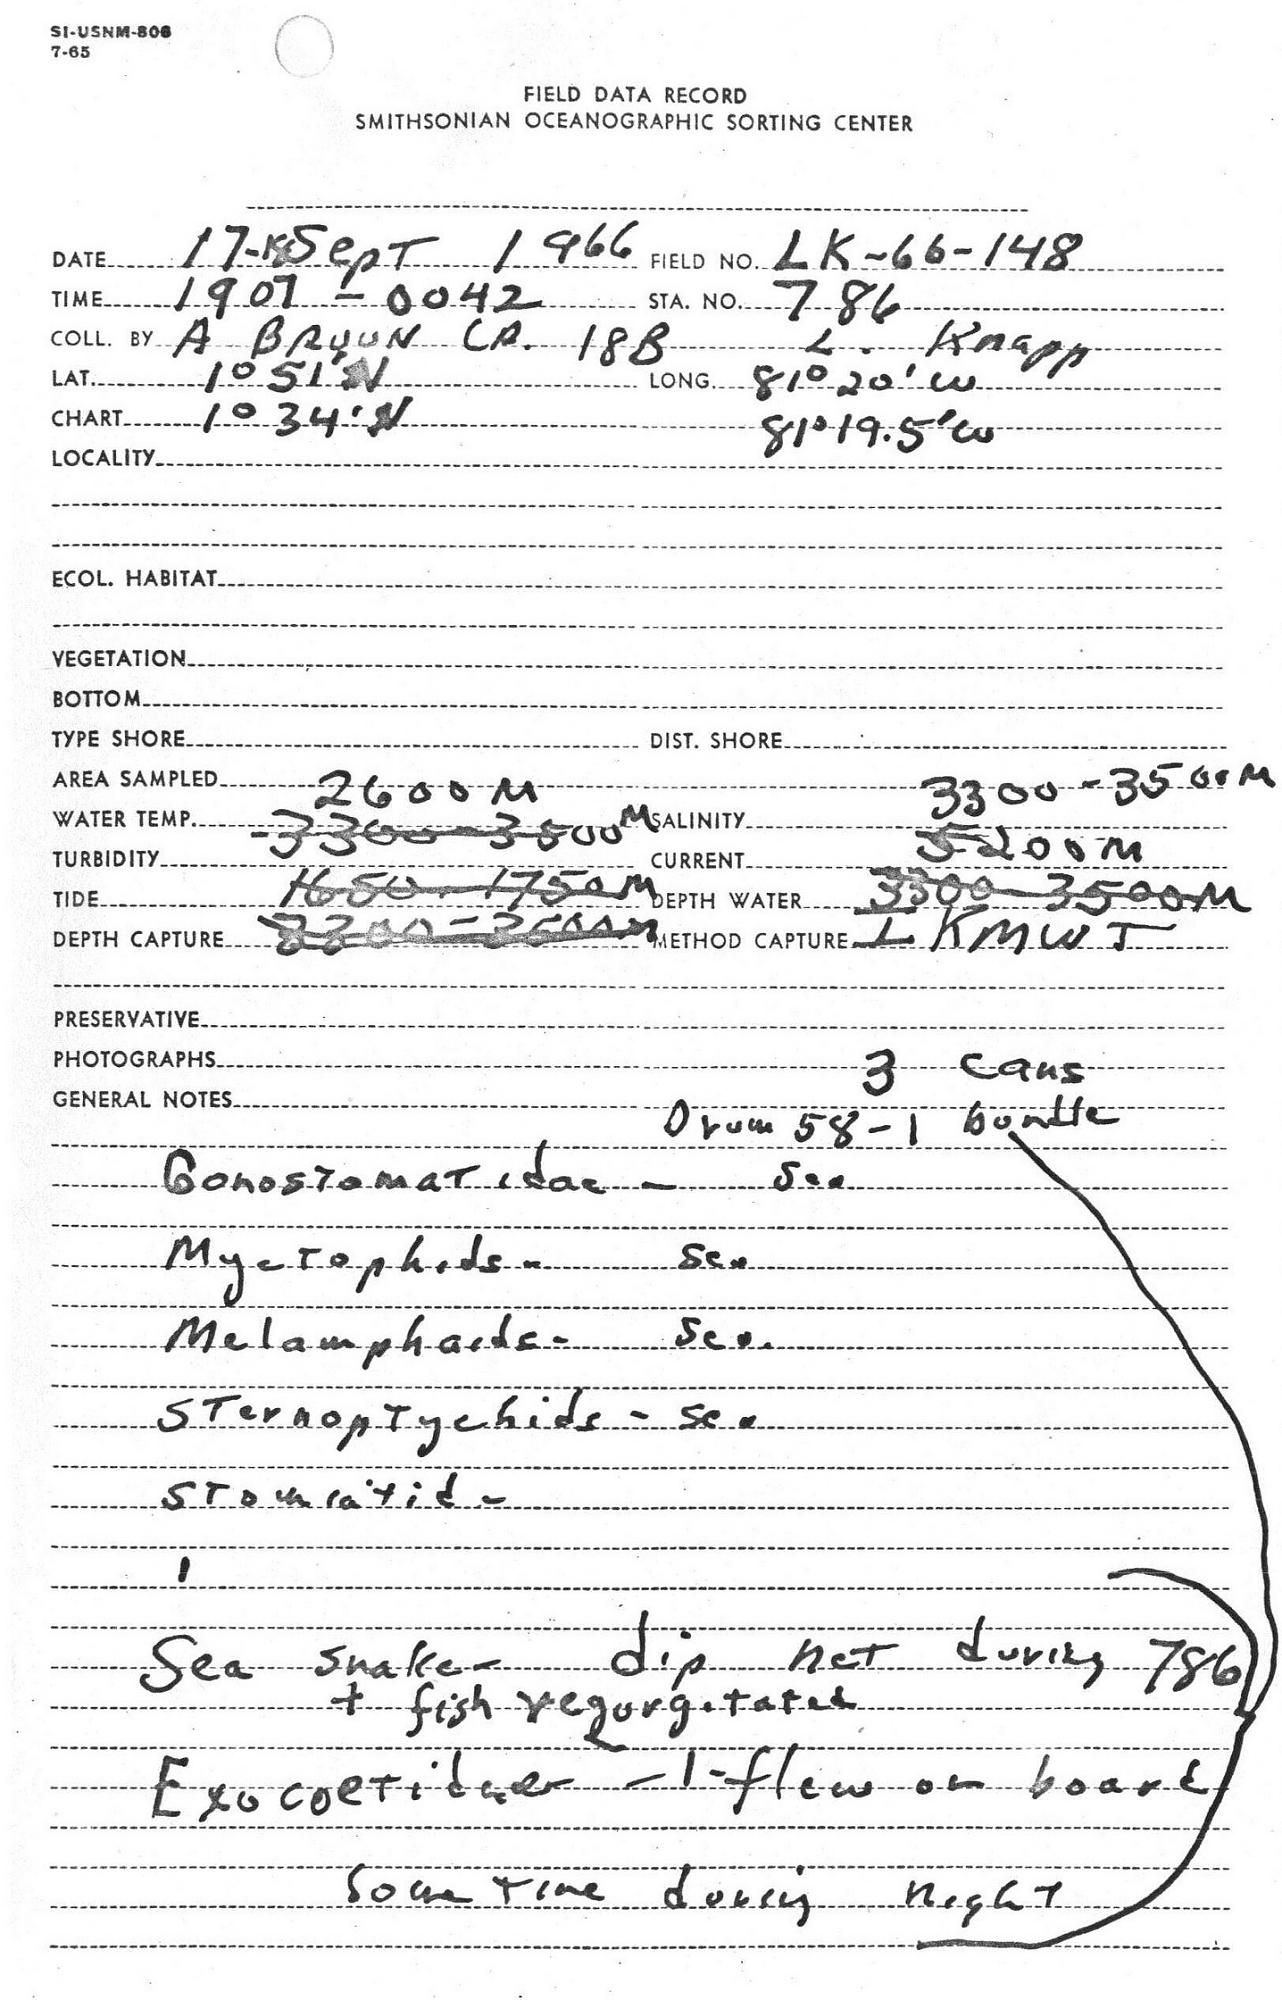 SI-USNM-806
7-65
FIELD DATA RECORD
SMITHSONIAN OCEANOGRAPHIC SORTING CENTER
DATE 17-18 Sept 1966 FIELD NO. LK-66-148
TIME 1907 - 0042 STA. NO. 786
COLL. BY A BRUUN CR. 18B L. Knapp
LAT. 1° 51' N LONG. 81° 20' W
CHART 1° 34' N 81° 19.5' W
LOCALITY
ECOL. HABITAT
VEGETATION
BOTTOM
TYPE SHORE DIST. SHORE
AREA SAMPLED 2600 M 3300 - 3500 M
WATER TEMP. 3300 - 3500 M SALINITY
TURBIDITY CURRENT 5200 M
TIDE 1650 - 1750 M DEPTH WATER 3300 - 3500 M
DEPTH CAPTURE 3300 - 3500 M METHOD CAPTURE LKMWT
PRESERVATIVE
PHOTOGRAPHS 3 cans
GENERAL NOTES
Drum 58-1 bundle
Gonostomatidae -
Myctophids -
Melamphaids -
Sternoptychids -
Stomiatid -
1
Sea snake - dip net during 786
+ fish regurgitated
Exocoetidae - 1 - flew on board
Some time during night